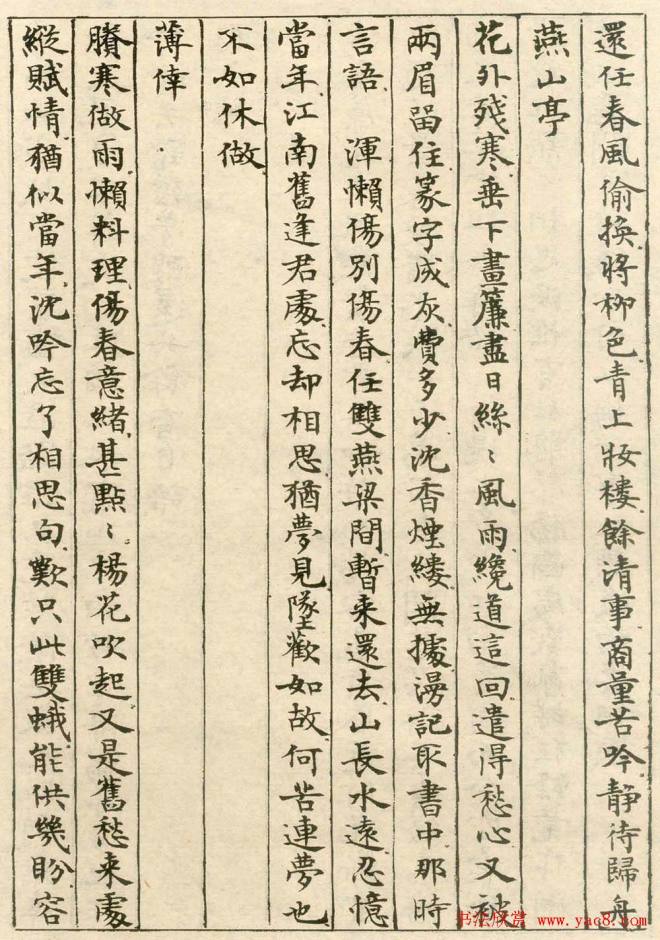 還任春風偷換將栁色青上妝樓餘清事商量苦吟靜待歸舟
燕山亭
花外殘寒垂下畫簾盡日絲〻風雨纔道這回遣得愁心又被
兩眉留住篆字成灰費多少沈香煙縷無據漫記取書中那時
言語　渾懶傷別傷春任雙燕梁間暫来還去山長水遠忍憶
當年江南舊逢君處忘却相思猶夢見墜歡如故何苦連夢也
不如休做
薄倖
賸寒做雨懶料理傷春意緒甚點〻楊花吹起又是舊愁来處
縱賦情猶似當年沈吟忘了相思句歎只此雙蛾能供幾盼容
书法欣赏 www.yac8.com